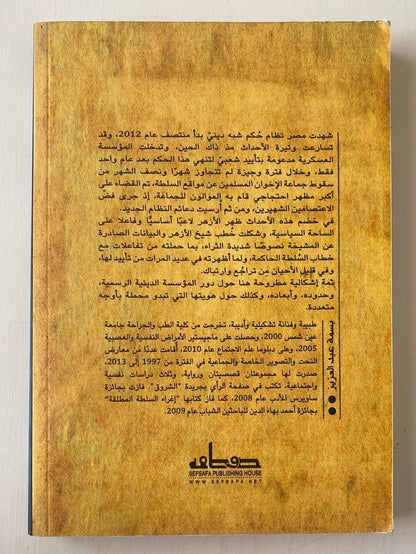 شهدت مصر نظام حُكم شبه دينيّ بدأ منتصف عام 2012، وقد
تسارعت وتيرة الأحداث مذ ذاك الحين، وتدخلت المؤسسة
العسكرية مدعومة بتأييد شعبيّ لتنهي هذا الحكم بعد عام واحد
فقط، وخلال فترة وجيزة لم تتجاوز شهرًا ونصف الشهر من
سقوط جماعة الإخوان المسلمين عن مواقع السلطة، تم القضاء على
أكبر مظهر احتجاجي قام به الموالون للجماعة، إذ جرى فضّ
الاعتصامين الشهيرين، ومن ثم أُرسيت دعائم النظام الجديد.
في خضم هذه الأحداث ظهر الأزهر لاعبًا أساسيًّا وفاعلا على
الساحة السياسية، وشكلت خُطب شيخ الأزهر والبيانات الصادرة
عن المشيخة نصوصًا شديدة الثراء، بما حملته من تفاعلات مع
خطاب السُلطة الحاكمة، ولما أظهرته في عديد المرات من تأييد لها،
وفي قليل الأحيان من تراجع وارتباك.
ثمة إشكالية مطروحة هنا حول دور المؤسسة الدينية الرسمية،
وحدوده، وأبعاده، وكذلك حول هويتها التي تبدو محملة بأوجه
متعددة.
بسمة عبد العزيز
طبيبة وفنانة تشكيلية وأديبة، تخرجت من كلية الطب والجراحة جامعة
عين شمس 2000، وحصلت على ماجيستير الأمراض النفسية والعصبية
2005، وعلى دبلوما علم الاجتماع عام 2010، أقامت عددًا من معارض
النحت والتصوير الخاصة والجماعية في الفترة من 1997 إلى 2013،
صدرت لها مجموعتان قصصيتان ورواية، وثلاث دراسات نفسية
واجتماعية، تكتب في صفحة الرأي بجريدة "الشروق". فازت بجائزة
ساويرس للأدب عام 2008، كما فاز كتابها "إغراء السلطة المطلقة"
بجائزة أحمد بهاء الدين للباحثين الشباب عام 2009.
صفصافة
SEFSAFA PUBLISHING HOUSE
WWW.SEFSAFA.NET